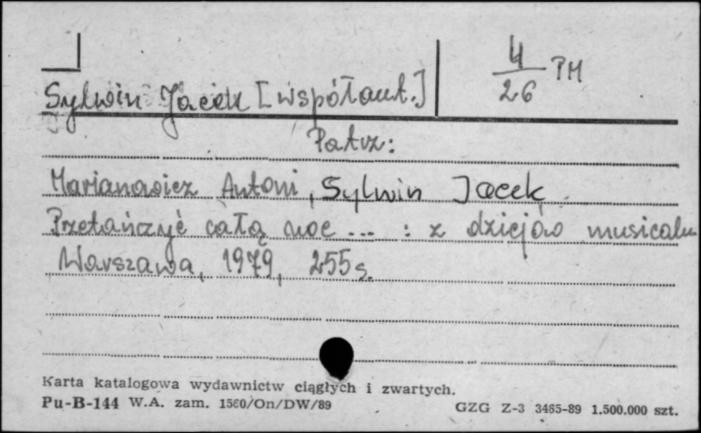 4
26 PM
Sylwin Jacek [współaut.]
Patrz:
Marianowicz Antoni, Sylwin Jacek
Przetańczyć całą noc ... : z dziejów musicalu
Warszawa, 1979, 255 s.
Karta katalogowa wydawnictw ciągłych i zwartych.
Pu-B-144 W.A. zam. 1560/On/DW/89
GZG Z-3 3465-89 1.500.000 szt.